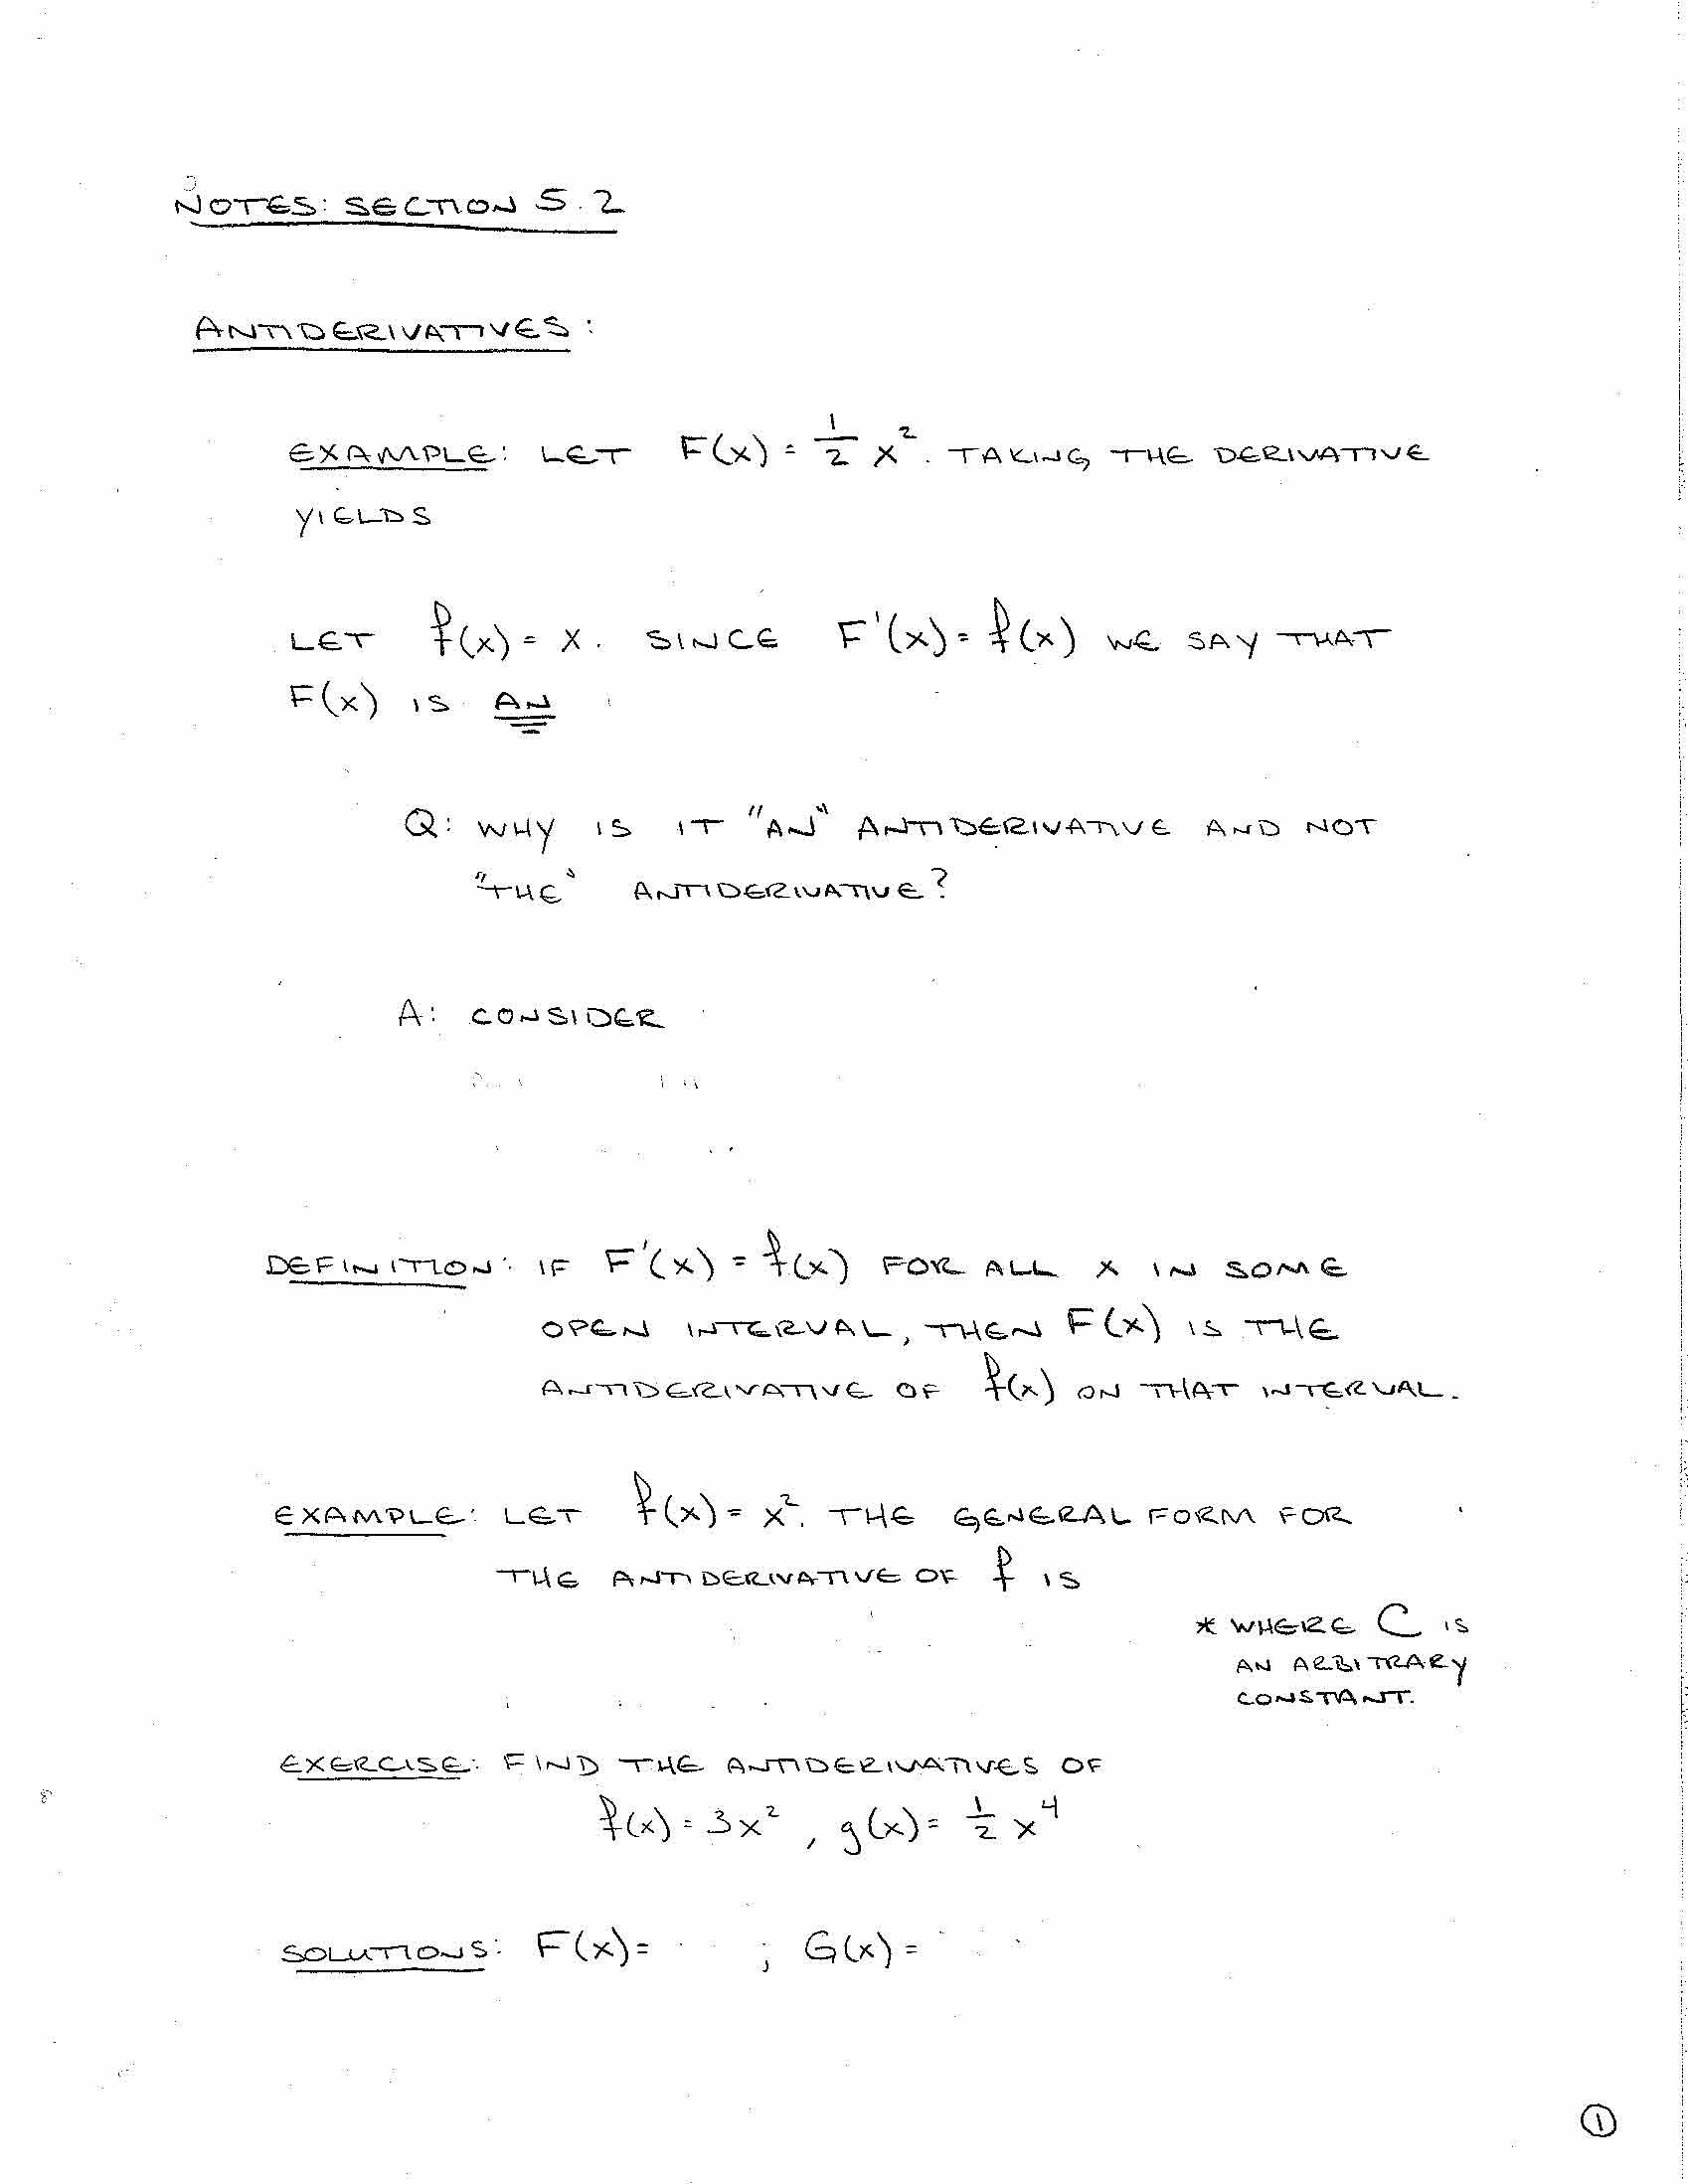 NOTES: SECTION 5.2
ANTIDERIVATIVES:
EXAMPLE: LET F(x) = 1/2 x². TAKING THE DERIVATIVE
YIELDS
LET f(x) = x. SINCE F'(x) = f(x) WE SAY THAT
F(x) IS AN
Q: WHY IS IT "AN" ANTIDERIVATIVE AND NOT
"THE" ANTIDERIVATIVE?
A: CONSIDER
DEFINITION: IF F'(x) = f(x) FOR ALL x IN SOME
OPEN INTERVAL, THEN F(x) IS THE
ANTIDERIVATIVE OF f(x) ON THAT INTERVAL.
EXAMPLE: LET f(x) = x². THE GENERAL FORM FOR
THE ANTIDERIVATIVE OF f IS
* WHERE C IS
AN ARBITRARY
CONSTANT.
EXERCISE: FIND THE ANTIDERIVATIVES OF
f(x) = 3x², g(x) = 1/2 x⁴
SOLUTIONS: F(x) = ; G(x) =
1